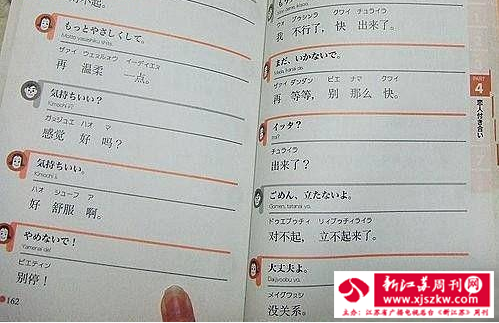 对不起。
もっとやさしくして。
Motto yasashiku shite.
ザァイ ウェンルゥオ イーディエヌ
再 温柔 一点。
気持ちいい？
Kimochi ii?
ガァジュエ ハオ マ
感觉 好 吗？
気持ちいい。
Kimochi ii.
ハオ シューフ ア
好 舒服 啊。
やめないで！
Yamenai de!
ビエティン
别停！
162
ウオ ブゥシンラ クワイ チュライラ
我 不行了，快 出来了。
まだ、いかないで。
Mada, ikanai de.
ザァイ ダンダン ビエ ナマ クワイ
再 等等， 别 那么 快。
イッタ？
Itta?
チュライラ
出来了？
ごめん、立たないよ。
Gomen, tatanai yo.
ドゥエブゥチィ リィブゥチィライラ
对不起， 立不起来了。
大丈夫よ。
Daijyoubu yo.
メイグワンシ
没关系。
PART
4
恋人付き合い
新江苏周刊网
www.xjszkw.com
主办：江苏省广播电视总台《新江苏》周刊